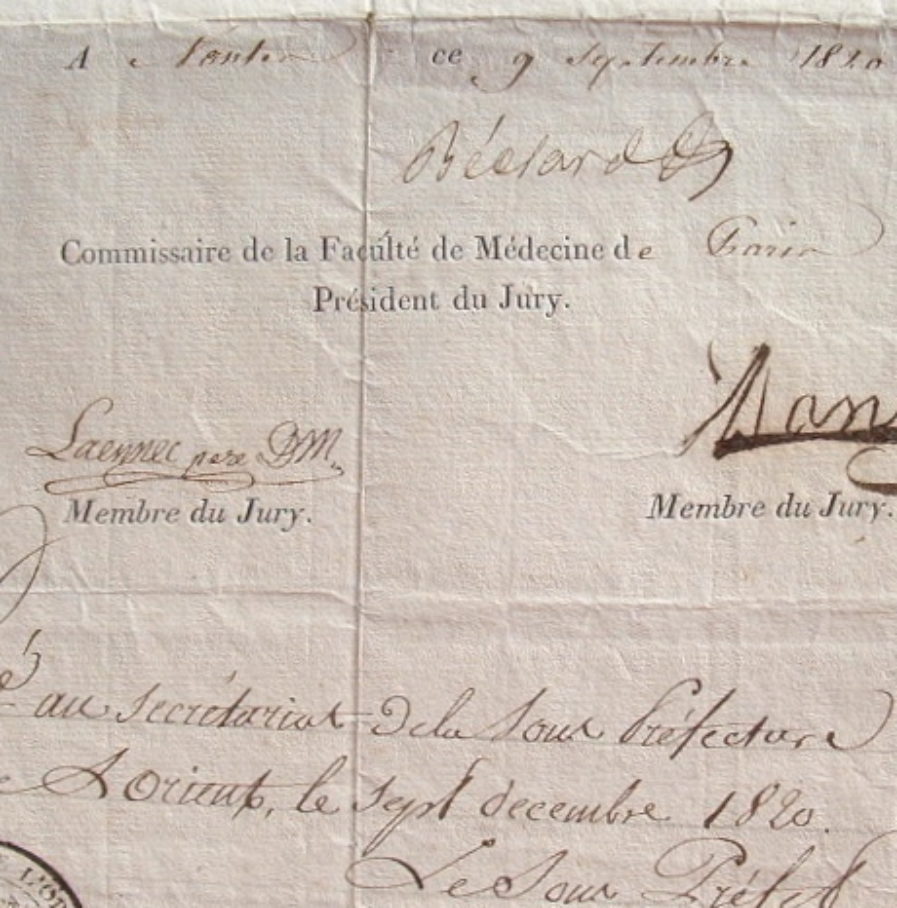 A Nantes ce 9 Septembre 1820
Béclard
Commissaire de la Faculté de Médecine de Paris
Président du Jury.
Laennec pere DM.
Membre du Jury.
Membre du Jury.
au secrétariat de la Sous Préfecture
Lorient, le sept decembre 1820.
Le Sous Préfet